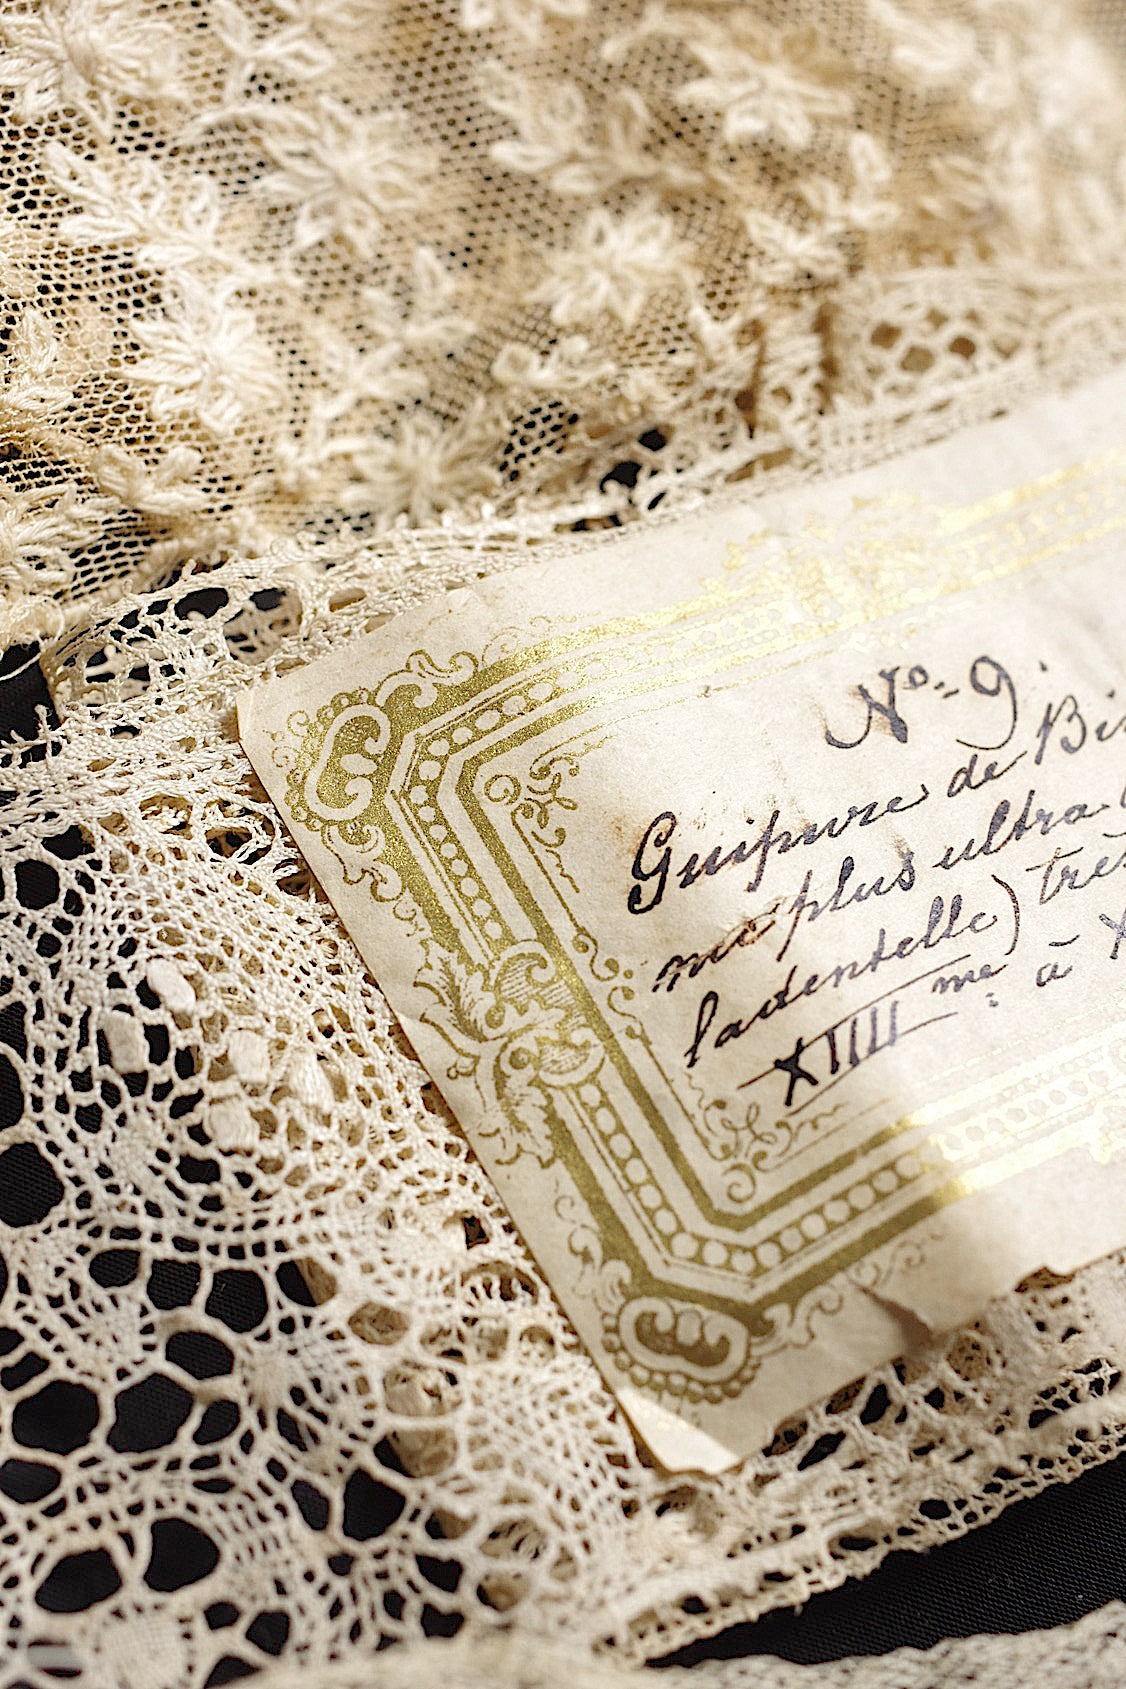 No:- 9.
Guipure de Bi
nec plus ultra
la dentelle) très
XIIII me à X